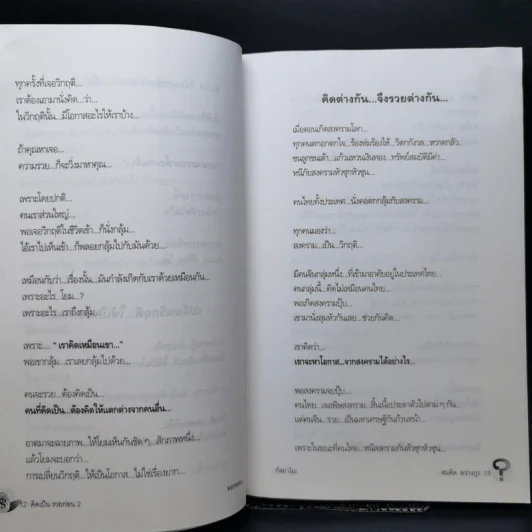 ทุกครั้งที่เจอวิกฤติ...
เราต้องเอามานั่งคิด...ว่า...
ในวิกฤตินั้น...มีโอกาสอะไรให้เราบ้าง...
ถ้าคุณหาเจอ...
ความรวย...ก็จะวิ่งมาหาคุณ...
เพราะโดยปกติ...
คนเราส่วนใหญ่...
พอเจอวิกฤติในชีวิตเข้า...ก็นั่งกลุ้ม...
ไอ้เราไปเห็นเข้า...ก็พลอยกลุ้มไปกับมันด้วย...
เหมือนกับว่า...เรื่องนั้น...มันกำลังเกิดกับเราด้วยเหมือนกัน...
เพราะอะไร...โยม...?
เพราะอะไร...เราถึงกลุ้ม...
เพราะ... " เราคิดเหมือนเขา..."
พอเขากลุ้ม...เราเลยกลุ้มไปด้วย...
คนจะรวย...ต้องคิดเป็น...
คนที่คิดเป็น...ต้องคิดให้แตกต่างจากคนอื่น...
อาตมาจะฉายภาพ...ให้โยมเห็นกันชัด ๆ...สักภาพหนึ่ง...
แล้วโยมจะบอกว่า...
การเปลี่ยนวิกฤติ...ให้เป็นโอกาส...ไม่ใช่เรื่องยาก...
12 คิดเป็น รวยก่อน 2
คิดต่างกัน...จึงรวยต่างกัน...
เมื่อตอนเกิดสงครามโลก...
ทุกคนตกอกตกใจ...ร้องห่มร้องไห้...วิตกกังวล...หวาดกลัว...
ขนลูกขนเต้า...แก้วแหวนเงินทอง...ทรัพย์สมบัติมีค่า...
หนีภัยสงครามหัวซุกหัวซุน...
คนไทยทั้งประเทศ...นั่งคอตกกลุ้มกับสงคราม...
ทุกคนมองว่า...
สงคราม...เป็น...วิกฤติ...
มีคนจีนกลุ่มหนึ่ง...ที่เข้ามาอาศัยอยู่ในประเทศไทย...
คนกลุ่มนี้...คิดไม่เหมือนคนไทย...
พอเกิดสงครามปุ๊บ...
เขามานั่งสุมหัวกันเลย...ช่วยกันคิด...
เขาคิดว่า...
เขาจะหาโอกาส...จากสงครามได้อย่างไร...
พอสงครามจบปุ๊บ...
คนไทย...เจอพิษสงคราม...สิ้นเนื้อประดาตัวไปตาม ๆ กัน...
แต่คนจีน...รวย...เป็นมหาเศรษฐีกันถ้วนหน้า...
เพราะในขณะที่คนไทย...หนีสงครามกันหัวซุกหัวซุน...
สมคิด ลวางกูร 13